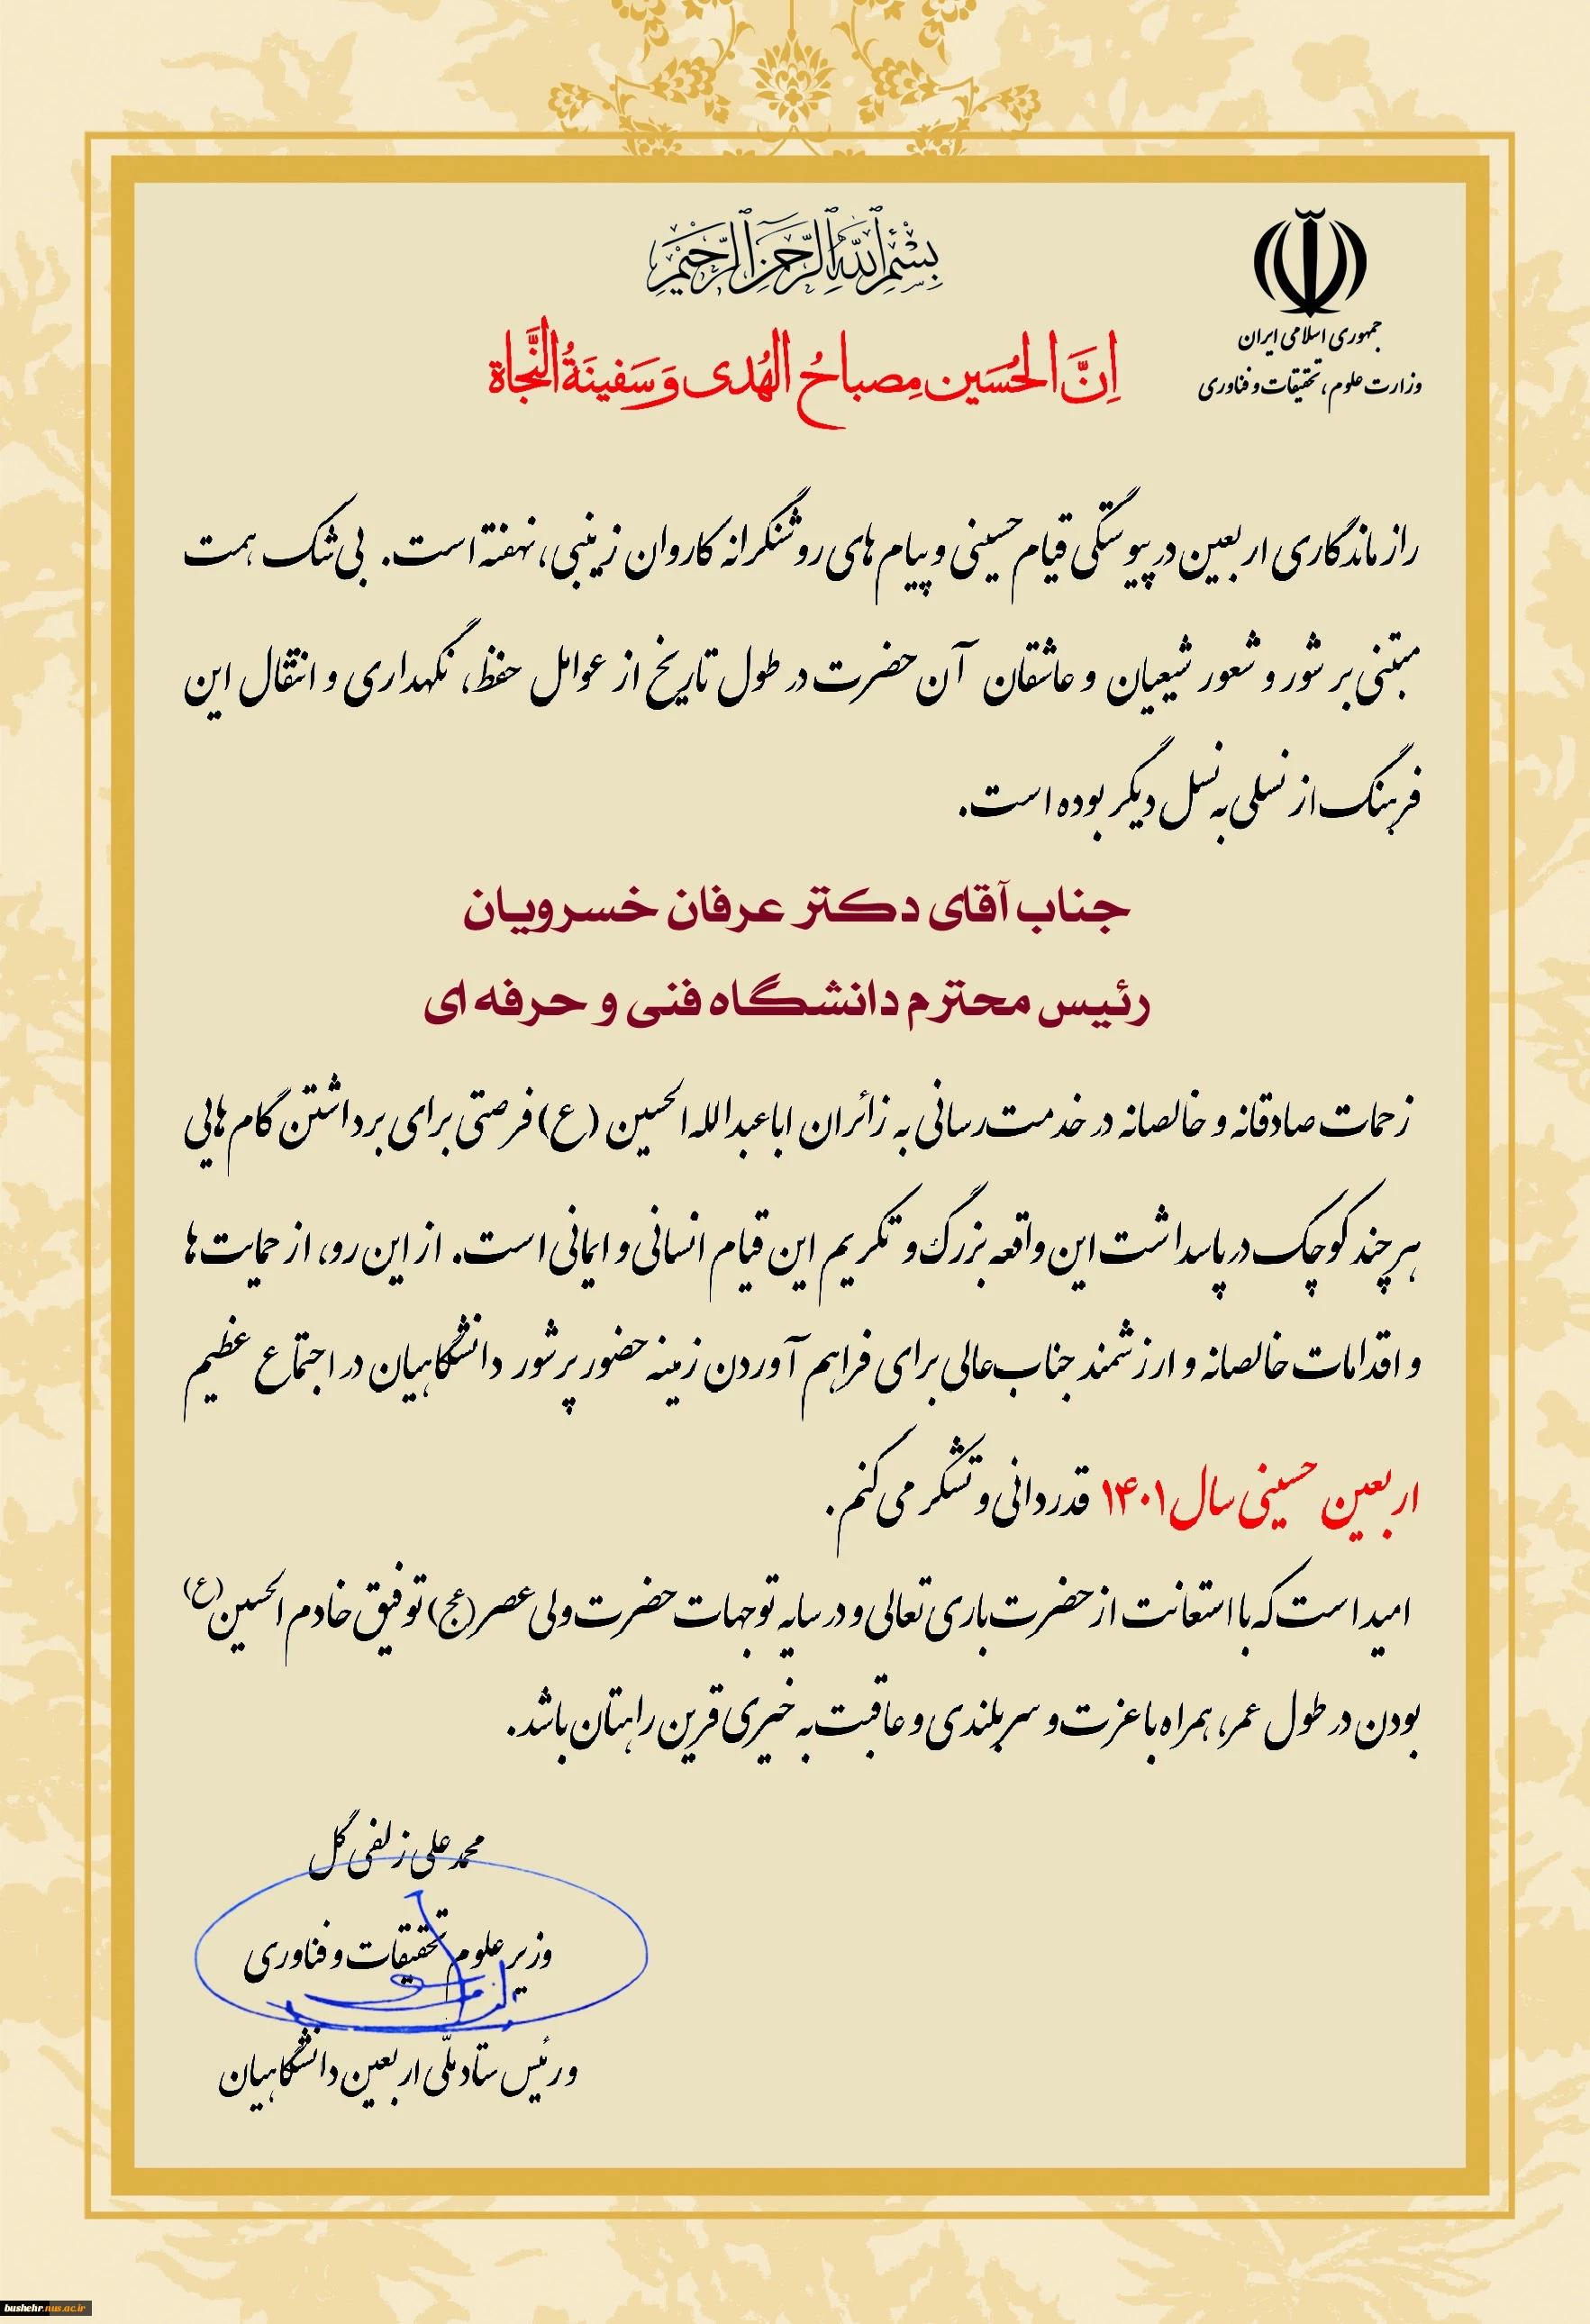 بِسْمِ ٱللَّهِ ٱلرَّحْمَنِ ٱلرَّحِيمِ
جمهوری اسلامی ایران
وزارت علوم، تحقیقات و فناوری
اِنَّ الحُسَین مِصباحُ الهُدی وَ سَفینَةُ النَّجاة
راز ماندگاری اربعین در پیوستگی قیام حسینی و پیام های روشنگرانه کاروان زینبی، نهفته است. بی شک همت
مبتنی بر شور و شعور شیعیان و عاشقان آن حضرت در طول تاریخ از عوامل حفظ، نگهداری و انتقال این
فرهنگ از نسلی به نسل دیگر بوده است.
جناب آقای دکتر عرفان خسرویان
رئیس محترم دانشگاه فنی و حرفه ای
زحمات صادقانه و خالصانه در خدمت رسانی به زائران اباعبدالله الحسین (ع) فرصتی برای برداشتن گام هایی
هر چند کوچک در پاسداشت این واقعه بزرگ و تکریم این قیام انسانی و ایمانی است. از این رو، از حمایت ها
و اقدامات خالصانه و ارزشمند جناب عالی برای فراهم آوردن زمینه حضور پرشور دانشگاهیان در اجتماع عظیم
اربعین حسینی سال ۱۴۰۱ قدردانی و تشکر می کنم.
امید است که با استعانت از حضرت باری تعالی و در سایه توجهات حضرت ولی عصر (عج) توفیق خادم الحسین (ع)
بودن در طول عمر، همراه با عزت و سربلندی و عاقبت به خیری قرین راهتان باشد.
محمد علی زلفی گل
وزیر علوم تحقیقات و فناوری
و رئیس ستاد ملّی اربعین دانشگاهیان
bushehr.nus.ac.ir